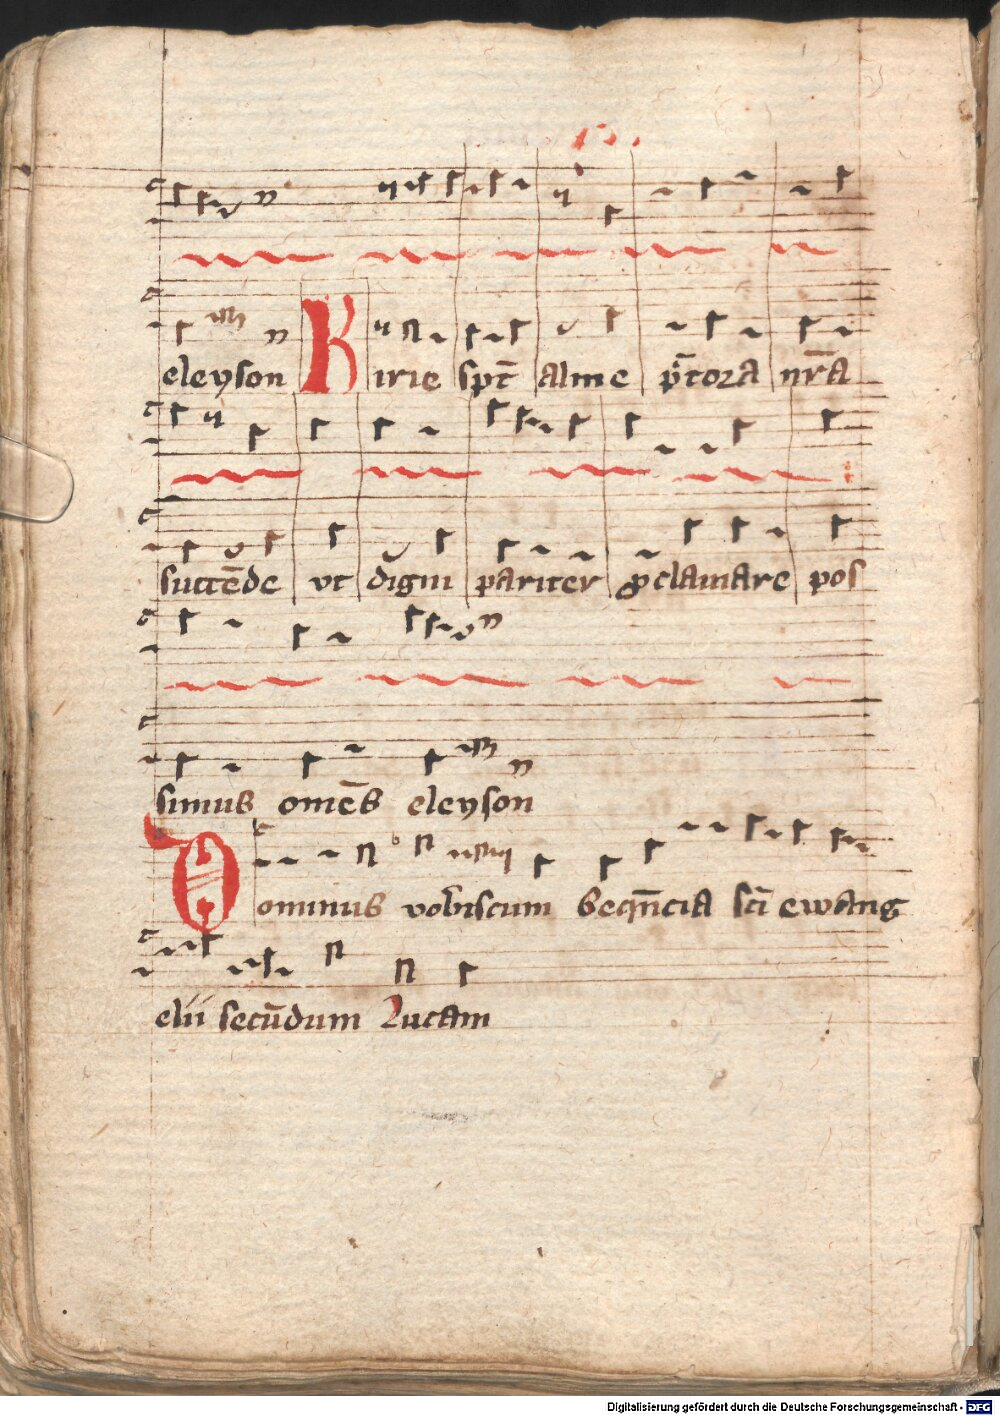 eleyson Kirie sp̄c alme p̄ctora nr̄a
succēde vt digni pariter ꝓclamare pos
simus omēs eleyson
Dominus vobiscum Seqn̄cia sc̄i ewang
elii secūdum Lucam
Digitalisierung gefördert durch die Deutsche Forschungsgemeinschaft - DFG